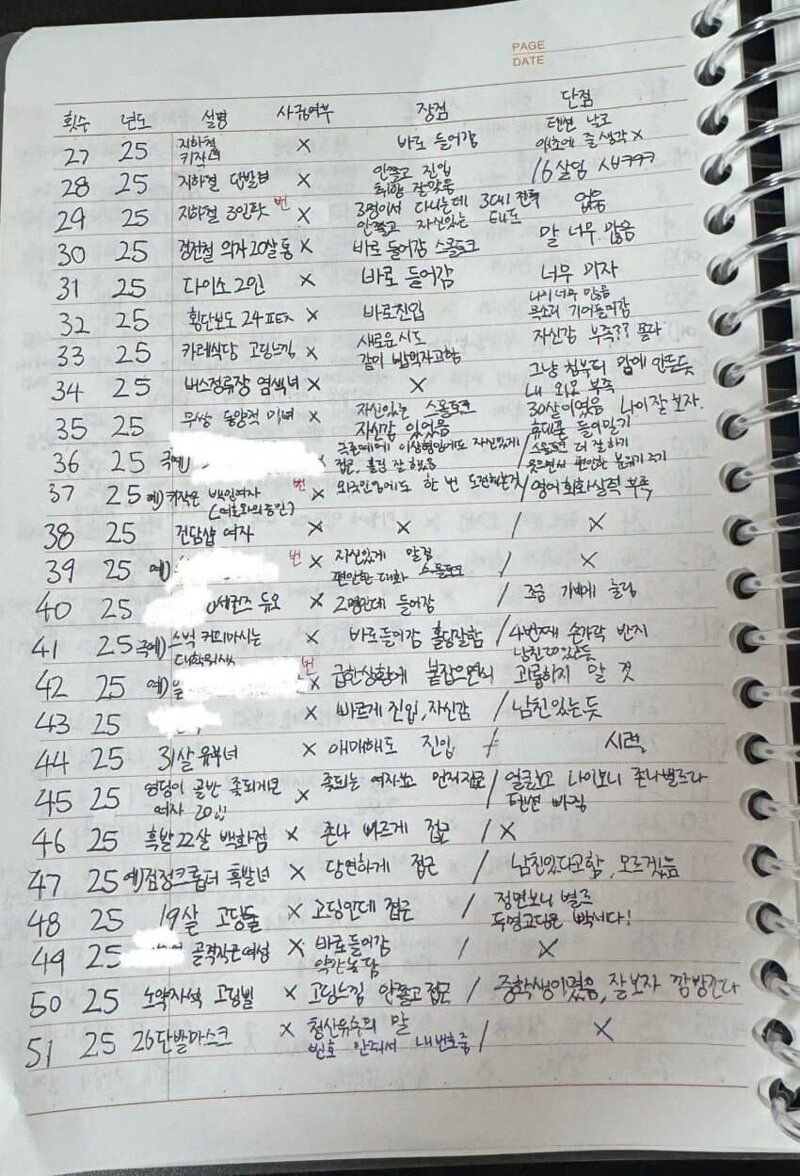 PAGE
DATE
횟수 년도 설명 사귐여부 장점 단점
27 25 지하철 키작녀 X 바로 들어감 텐션 낮고 애초에 줄 생각 X
28 25 지하철 단발녀 X 안쫄고 진입 취향 잘맞춤 16살임 시부ㅋㅋㅋ
29 25 지하철 3인팟 번 X 3명이서 다니는데 3대1 전투 안쫄고 자신있는 태도 없음
30 25 의자 20살 통 X 바로 들어감 스몰토크 말 너무 많음
31 25 다이소 2인 X 바로 들어감 너무 과자
32 25 횡단보도 24 X 바로진입 나이 너무 많음 목소리 기어들어감
33 25 카레식당 고딩느낌 X 새로운 시도 같이 밥먹자고함 자신감 부족?? 몰라
34 25 버스정류장 염색녀 X X 그냥 첨부터 맘에 안든듯 내 외모 부족
35 25 무쌍 동양적 미녀 X 자신있는 스몰토크 자신감 있었음 30살이었음 나이 잘 보자.
36 25 극예) X 극예에 이상형임에도 자신있게 접근, 홀딩 잘했음 / 휴대폰 들이밀기 스몰토크 더 잘하기 웃으면서 편안한 분위기 주기
37 25 예) 키작은 백인여자 번 X 외국인임에도 한 번 도전하는것 / 영어회화실력 부족
38 25 전담샵 여자 X X / X
39 25 예) 번 X 자신있게 말걺 편안한 대화 스몰토크 / X
40 25 듀오 X 2명인데 들어감 / 조금 기세에 눌림
41 25 극예) 스벅 커피마시는 대학원생 X 바로들어감 홀딩잘함 / 4번째 손가락 반지 남친 있는듯
42 25 예) 을 번 X 급한상황에 붙잡으면서 / 괴롭하지 말 것
43 25 X 바르게 진입, 자신감 / 남친 있는듯
44 25 31살 유부녀 X 애매해도 진입 / 시력
45 25 엉덩이 골반 좆되게큰 여자 20 X 좆되는 여자보고 먼저접근 / 얼굴보고 나이보니 존나별로라 텐션 빠짐
46 25 흑발 22살 백화점 X 존나 빠르게 접근 / X
47 25 예) 검정크롭티 흑발녀 X 당연하게 접근 / 남친있다고함, 모르겠음
48 25 19살 고딩들 X 고딩인데 접근 / 정면보니 별로 두명고딩은 빡세다!
49 25 골격작은여성 X 바로들어감 약간농담 / X
50 25 노약자석 고딩삘 X 고딩느낌 안쫄고접근 / 중학생이였음, 잘보자 깜방간다
51 25 26단발마스크 X 청산유수의 말 번호 안줘서 내번호줌 / X